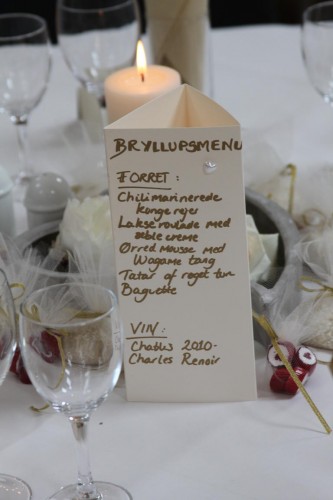 BRYLLUPSMENU
FORRET:
Chilimarinerede
kongerejer
Lakseroulade med
æblecreme
Ørred mousse med
Wagame tang
Tatar af røget tun
Baguette
VIN:
Chablis 2010-
Charles Renoir